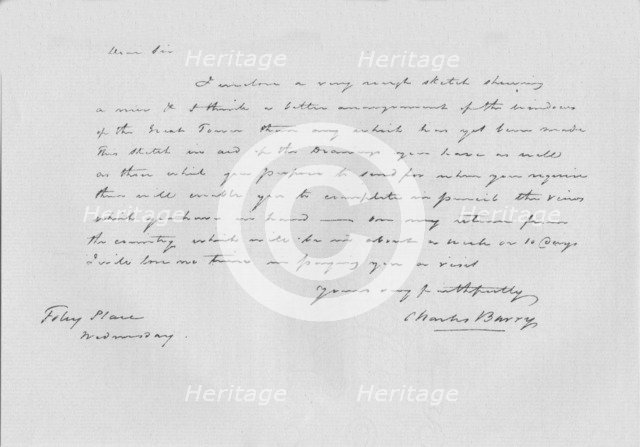 Dear Sir
I enclose a very rough sketch shewing
a new & I think a better arrangement of the windows
of the Great Tower than any which has yet been made
This sketch in aid of the Drawings you have as well
as those which you propose to send for when you require
them will enable you to complete in pencil the views
which you have in hand on my return from
the country which will be in about a week or 10 days
I will lose no time in paying you a visit
Yours very faithfully
Charles Barry
Foley Place
Wednesday.
Heritage
Heritage
Heritage
Heritage
Heritage
Heritage
©